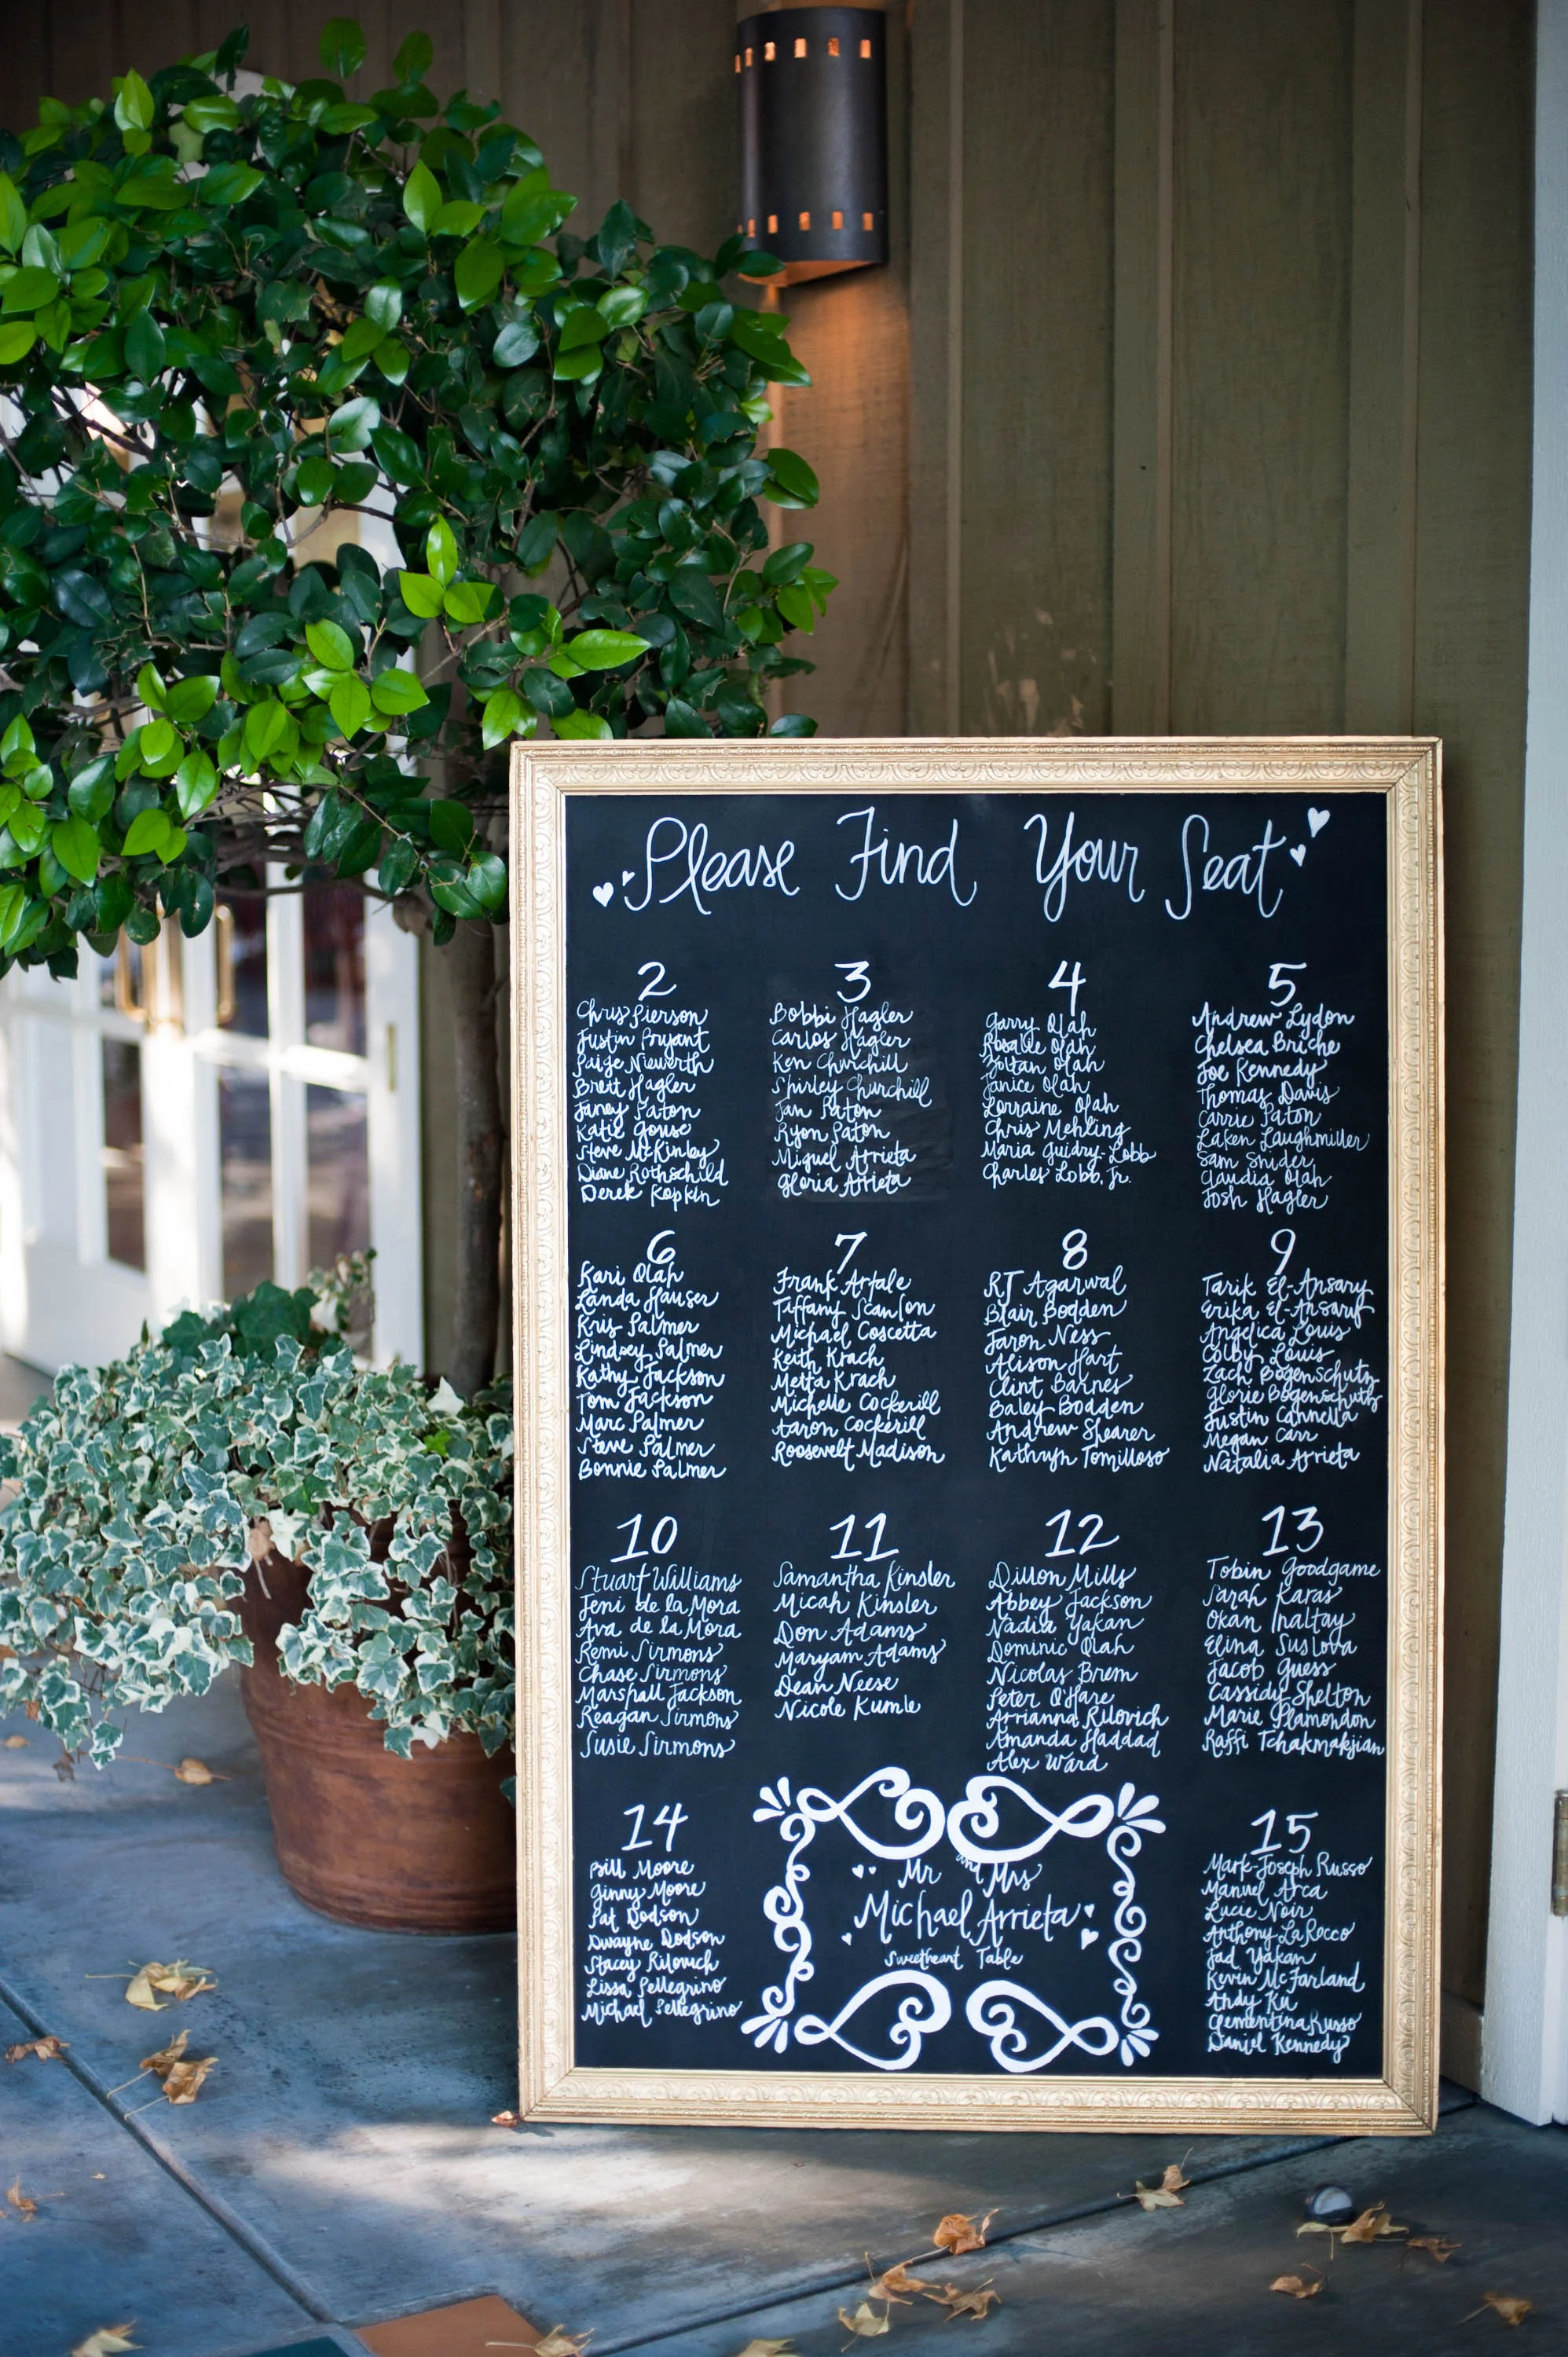 Please Find Your Seat
2
Chris Pierson
Justin Bryant
Paige Niewerth
Brett Hagler
Janey Paton
Katie Gouse
Steve McKinby
Diane Rothschild
Derek Kopkin
3
Bobbi Hagler
Carlos Hagler
Ken Churchill
Shirley Churchill
Jan Paton
Ryon Paton
Miguel Arrieta
Gloria Arrieta
4
Garry Olah
Rosalie Olah
Zoltan Olah
Janice Olah
Lorraine Olah
Chris Mehling
Maria Guidry-Lobb
Charles Lobb, Jr.
5
Andrew Lydon
Chelsea Briche
Joe Kennedy
Thomas Davis
Carrie Paton
Laken Laughmiller
Sam Snider
Claudia Olah
Josh Hagler
6
Kari Olah
Landa Hauser
Kris Palmer
Lindsey Palmer
Kathy Jackson
Tom Jackson
Marc Palmer
Steve Palmer
Bonnie Palmer
7
Frank Artale
Tiffany Scanlon
Michael Coscetta
Keith Krach
Metta Krach
Michelle Cockerill
Aaron Cockerill
Roosevelt Madison
8
RJ Agarwal
Blair Bodden
Jaron Ness
Alison Hart
Clint Barnes
Baley Bodden
Andrew Shearer
Kathryn Tomilloso
9
Tarik El-Ansary
Erika El-Ansary
Angelica Louis
Colby Louis
Zach Bogenschutz
Glorie Bogenschutz
Justin Cannella
Megan Carr
Natalia Arrieta
10
Stuart Williams
Jeni de la Mora
Ava de la Mora
Remi Sirmons
Chase Sirmons
Marshall Jackson
Reagan Sirmons
Susie Sirmons
11
Samantha Kinsler
Micah Kinsler
Don Adams
Maryam Adams
Dean Neese
Nicole Kumle
12
Dillon Mills
Abbey Jackson
Nadia Yakan
Dominic Olah
Nicolas Brem
Peter O'Hare
Arrianna Rilovich
Amanda Haddad
Alex Ward
13
Tobin Goodgame
Sarah Karas
Okan Inaltay
Elina Suslova
Jacob Guess
Cassidy Shelton
Marie Plamondon
Raffi Tchakmakjian
14
Bill Moore
Ginny Moore
Pat Dodson
Dwayne Dodson
Stacey Rilovich
Lissa Pellegrino
Michael Pellegrino
Mr and Mrs
Michael Arrieta
Sweetheart Table
15
Mark-Joseph Russo
Manuel Arca
Lucie Noir
Anthony LaRocco
Jad Yakan
Kevin McFarland
Andy Ku
Clementina Russo
Daniel Kennedy